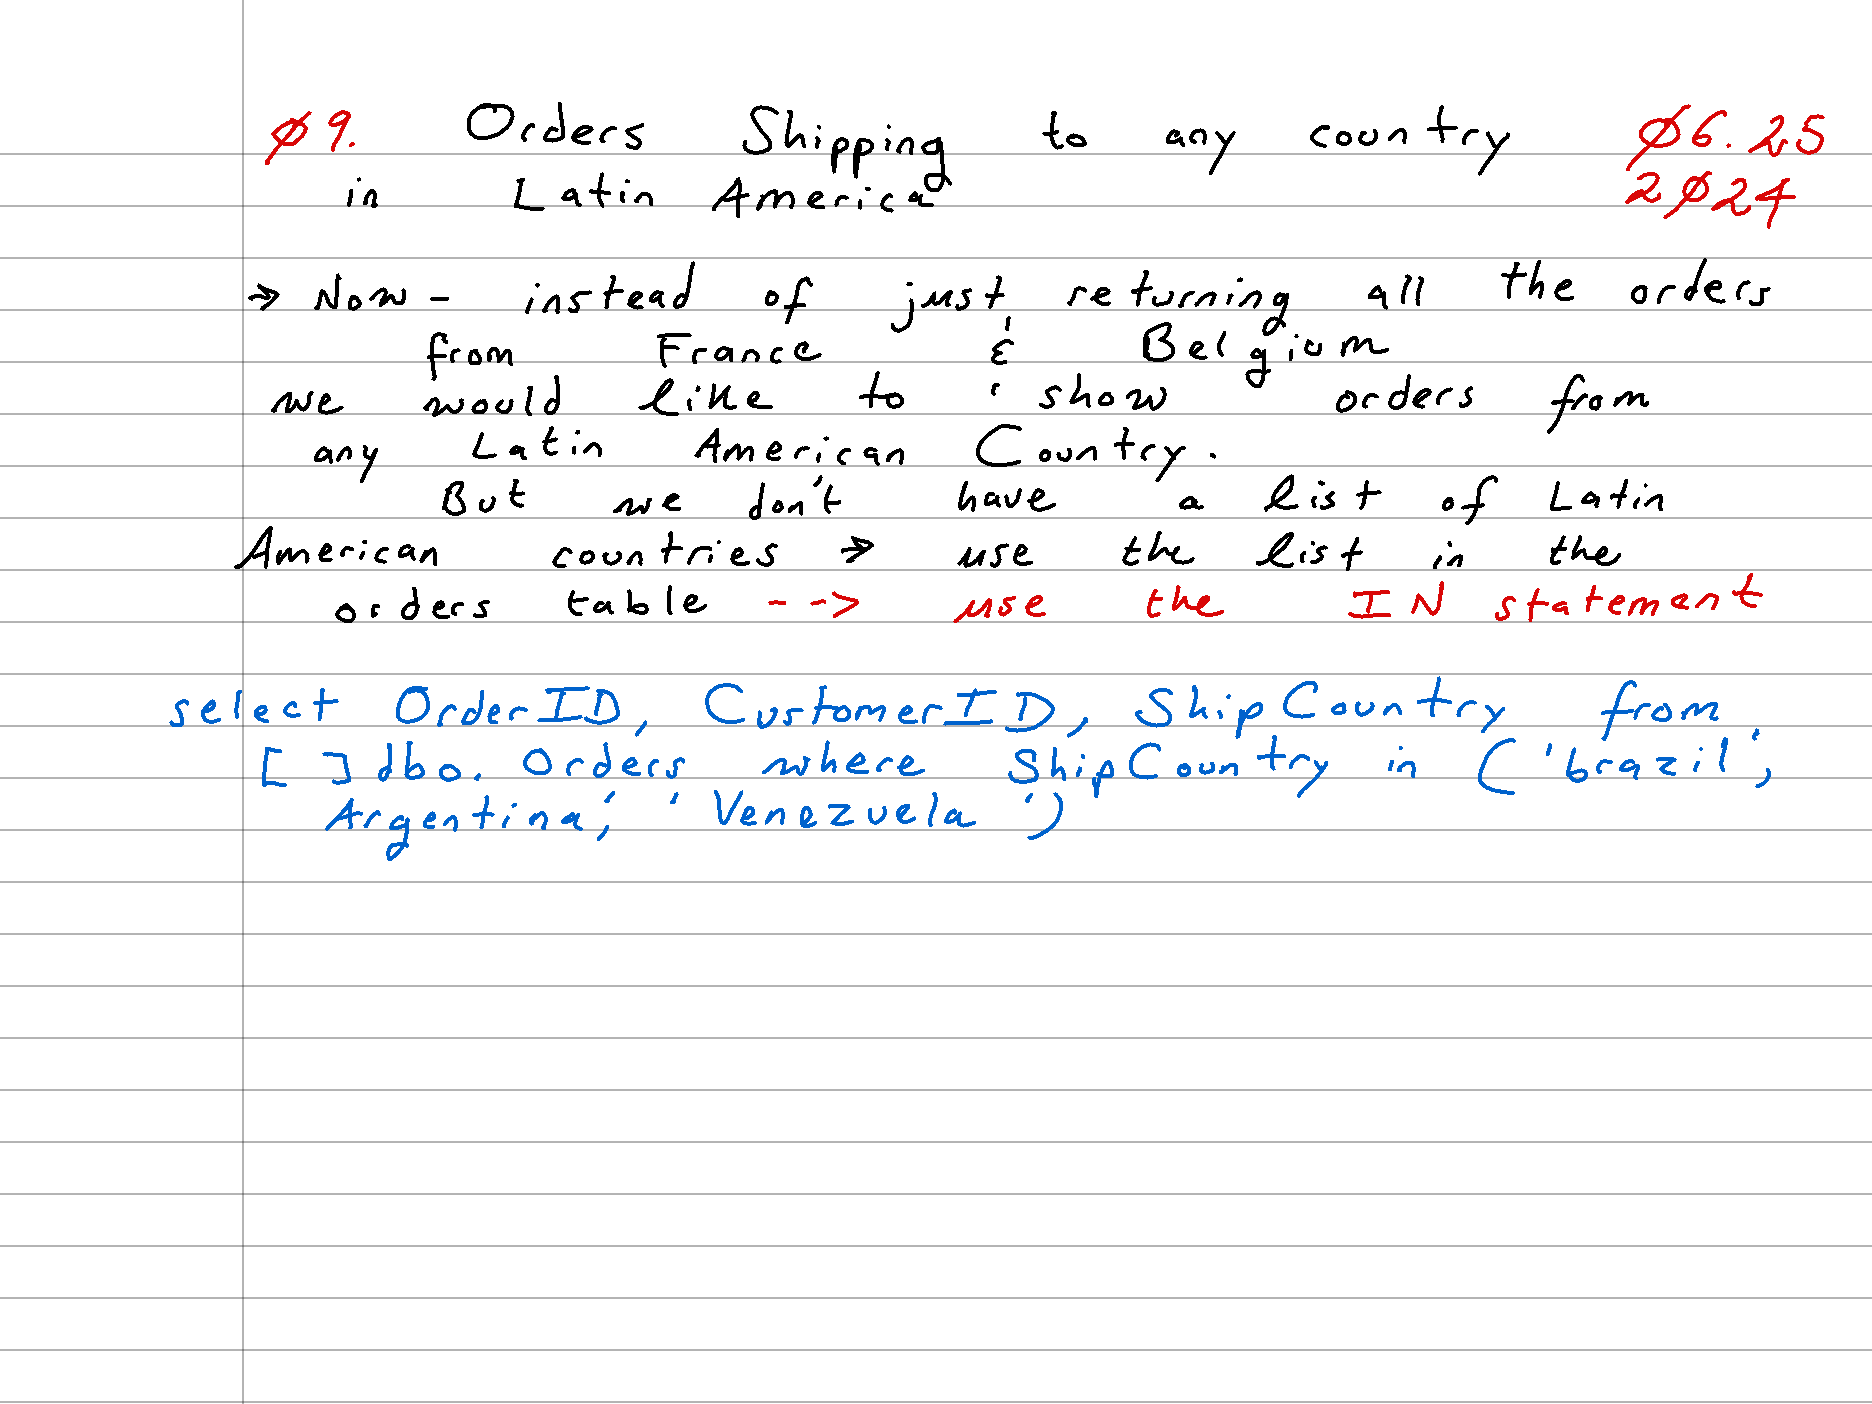 Ø9. Orders Shipping to any country Ø6.25
in Latin America 2Ø24
→ Now - instead of just returning all the orders
from France & Belgium
we would like to show orders from
any Latin American Country.
But we don't have a list of Latin
American countries → use the list in the
orders table --> use the IN statement
select OrderID, CustomerID, ShipCountry from
[ ] dbo. Orders where ShipCountry in ('brazil',
Argentina', 'Venezuela')